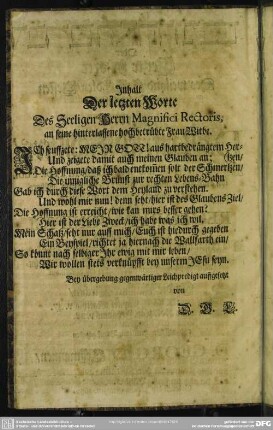 Inhalt
Der letzten Worte
Des Seeligen Herrn Magnifici Rectoris,
an seine hinterlassene hochbetrübte Frau Witbe.
ICh seuffzete: MEIN GOTT aus hartbedrängtem Her-
Und zeigte damit auch meinen Glauben an: (tzen/
Die Hoffnung/ daß ich bald entbunden seit der Schmertzen/
Die innigliche Brunst zur rechten Lebens-Bahn
Gab ich durch diese Wort dem Heyland zu verstehen.
Und wohl mir nun! denn seht/ hier ist des Glaubens Ziel/
Die Hoffnung ist erreicht/ wie kan mirs besser gehen?
Hier ist der Liebe Zweck/ ich hab was ich wil.
Mein Schatz/ seht nur auff mich/ Euch ist hiedurch gegeben
Ein Beyspiel/ richtet ja hiernach die Wallfarth ein/
So könnt nach selbiger Ihr ewig mit mir leben/
Wir wollen stets verknüpfft bey unserm JEsu seyn.
Bey übergebung gegenwärtiger Leichpredigt auffgesetzt
von